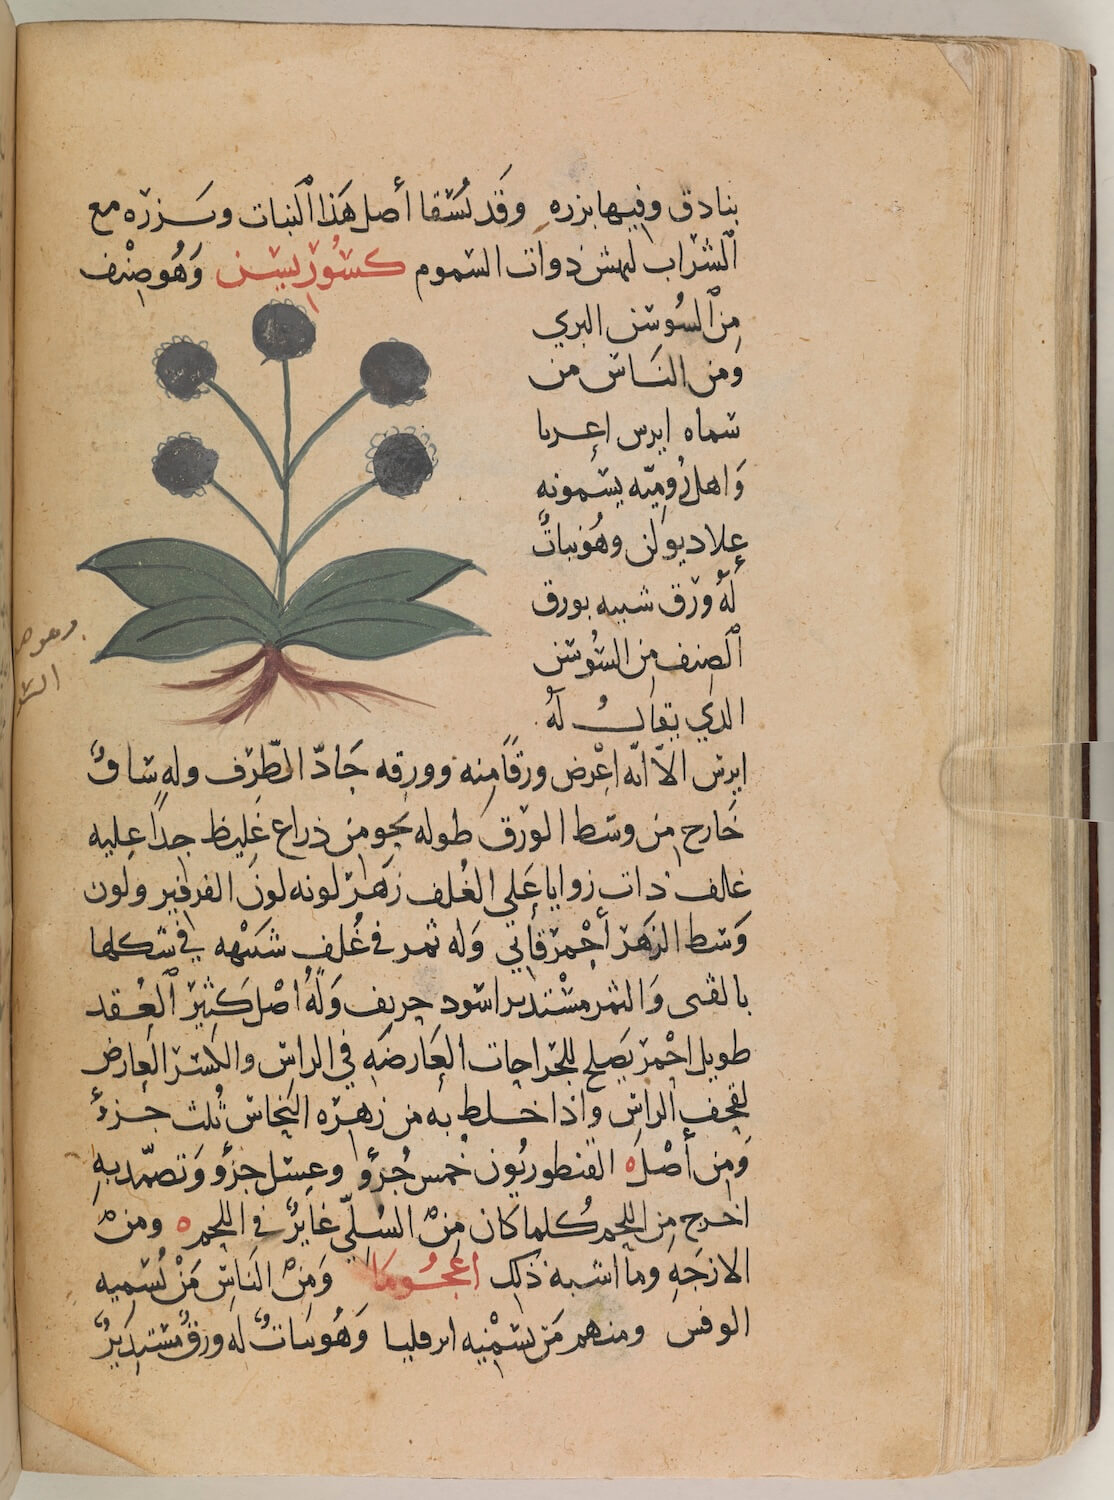 بنادق وفيها بزره وقد يسقا أصل هذا النبات وبزره مع
الشراب لنهش ذوات السموم كسوريسن وهو صنف
من السوسن البري
ومن الناس من
سماه ايرس اغريا
واهل رومية يسمونه
غلاديولن وهو نبات
له ورق شبيه بورق
الصنف من السوسن
الذي يقال له
وهو صـ
السو
ايرس الا انه اعرض ورقا منه وورقه حاد الطرف وله ساق
خارج من وسط الورق طوله نحو من ذراع غليظ جدا عليه
غلف ذات زوايا على الغلف زهر لونه لون الفرفير ولون
وسط الزهر أحمر قاني وله ثمر في غلف شبيه في شكلها
بالقثى والثمر مستدير اسود حريف وله اصل كثير العقد
طويل احمر يصلح للجراحات العارضه في الراس والكسر العارض
لقحف الراس واذا خلط به من زهرة النحاس ثلث جزء
ومن أصل القنطوريون خمس جزؤ وعسل جزؤ وتضمد به
اخرج من اللحم كلما كان من السلي غاير في اللحم ومن
الازجه وما اشبه ذلك ومن الناس من يسميه
ومنهم من يسميه وهو نبات له ورق مستدير